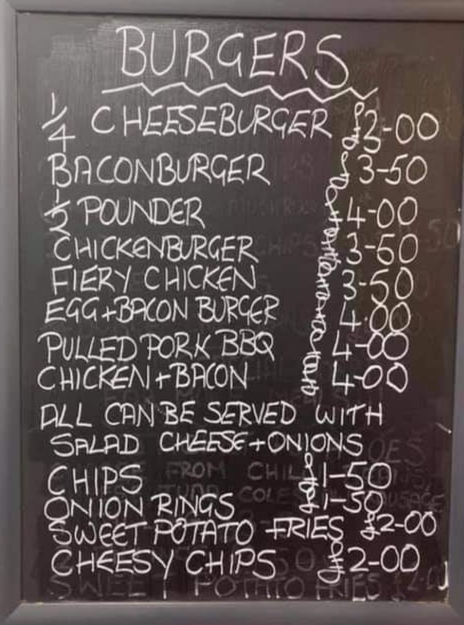 BURGERS
1/4 CHEESEBURGER £2-00
BACONBURGER £3-50
1/2 POUNDER £4-00
CHICKENBURGER £3-50
FIERY CHICKEN £3-50
EGG+BACON BURGER £4.00
PULLED PORK BBQ £4-00
CHICKEN+BACON £4-00
ALL CAN BE SERVED WITH
SALAD CHEESE+ONIONS
CHIPS £1-50
ONION RINGS £1-50
SWEET POTATO FRIES £2-00
CHEESY CHIPS £2-00
SWEET POTATO FRIES